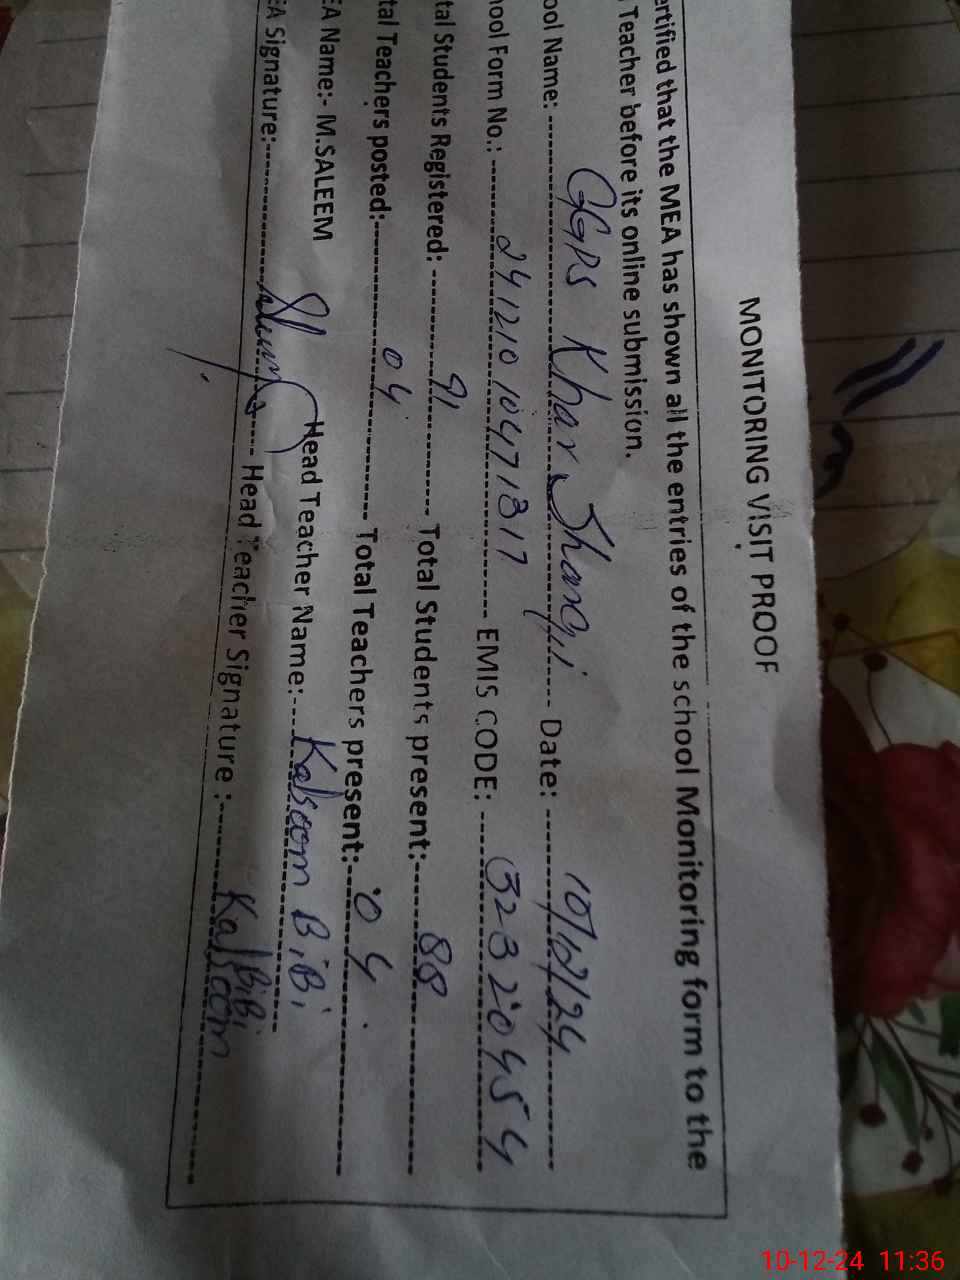 MONITORING VISIT PROOF
ertified that the MEA has shown all the entries of the school Monitoring form to the
Teacher before its online submission.
ool Name: GGPS Khar Jhangi Date: 10/12/24
hool Form No.: 241210 10471317 EMIS CODE: 32320454
tal Students Registered: 91 Total Students present: 88
tal Teachers posted: 04 Total Teachers present: 04
EA Name:- M.SALEEM Head Teacher Name: Kalsoom BiBi
EA Signature: Head Teacher Signature : Kalsoom BiBi
10-12-24 11:36